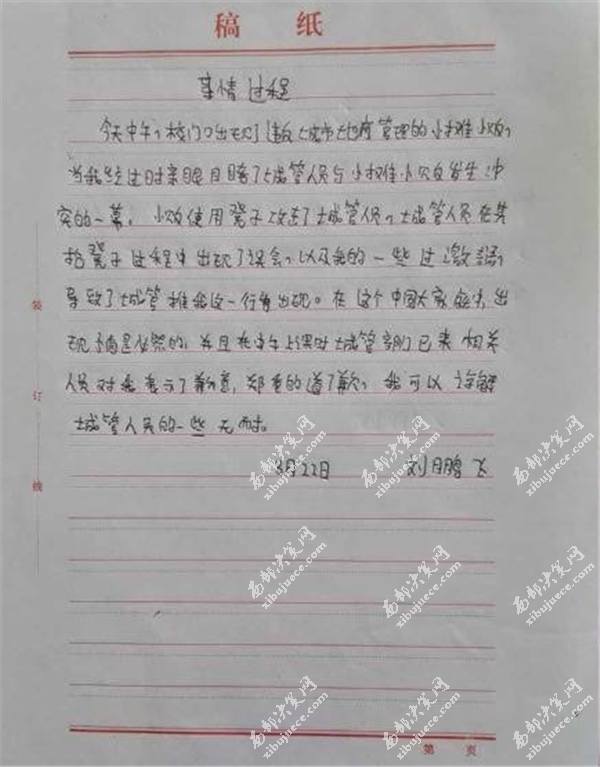 稿 纸
事情过程
今天中午,校门口出现了违反城市地摊管理的小摊小贩,
当我经过时亲眼目睹了城管人员与小摊小贩发生冲
突的一幕。小贩使用凳子攻击了城管人员,城管人员在其
抬凳子过程中出现了误会,以及我的一些过激话,
导致了城管推我这一行为出现。在这个中国大家庭中,出
现矛盾是必然的,并且在中午上课时城管部门已来相关
人员对我表示了歉意,郑重的道了歉,我可以谅解
城管人员的一些无奈。
3月22日 刘鹏飞
装
订
线
西部决策网
xibujuece.com
西部决策网
xibujuece.com
西部决策网
xibujuece.com
西部决策网
xibujuece.com
西部决策网
xibujuece.com
西部决策网
xibujuece.com
西部决策网
xibujuece.com
第 页